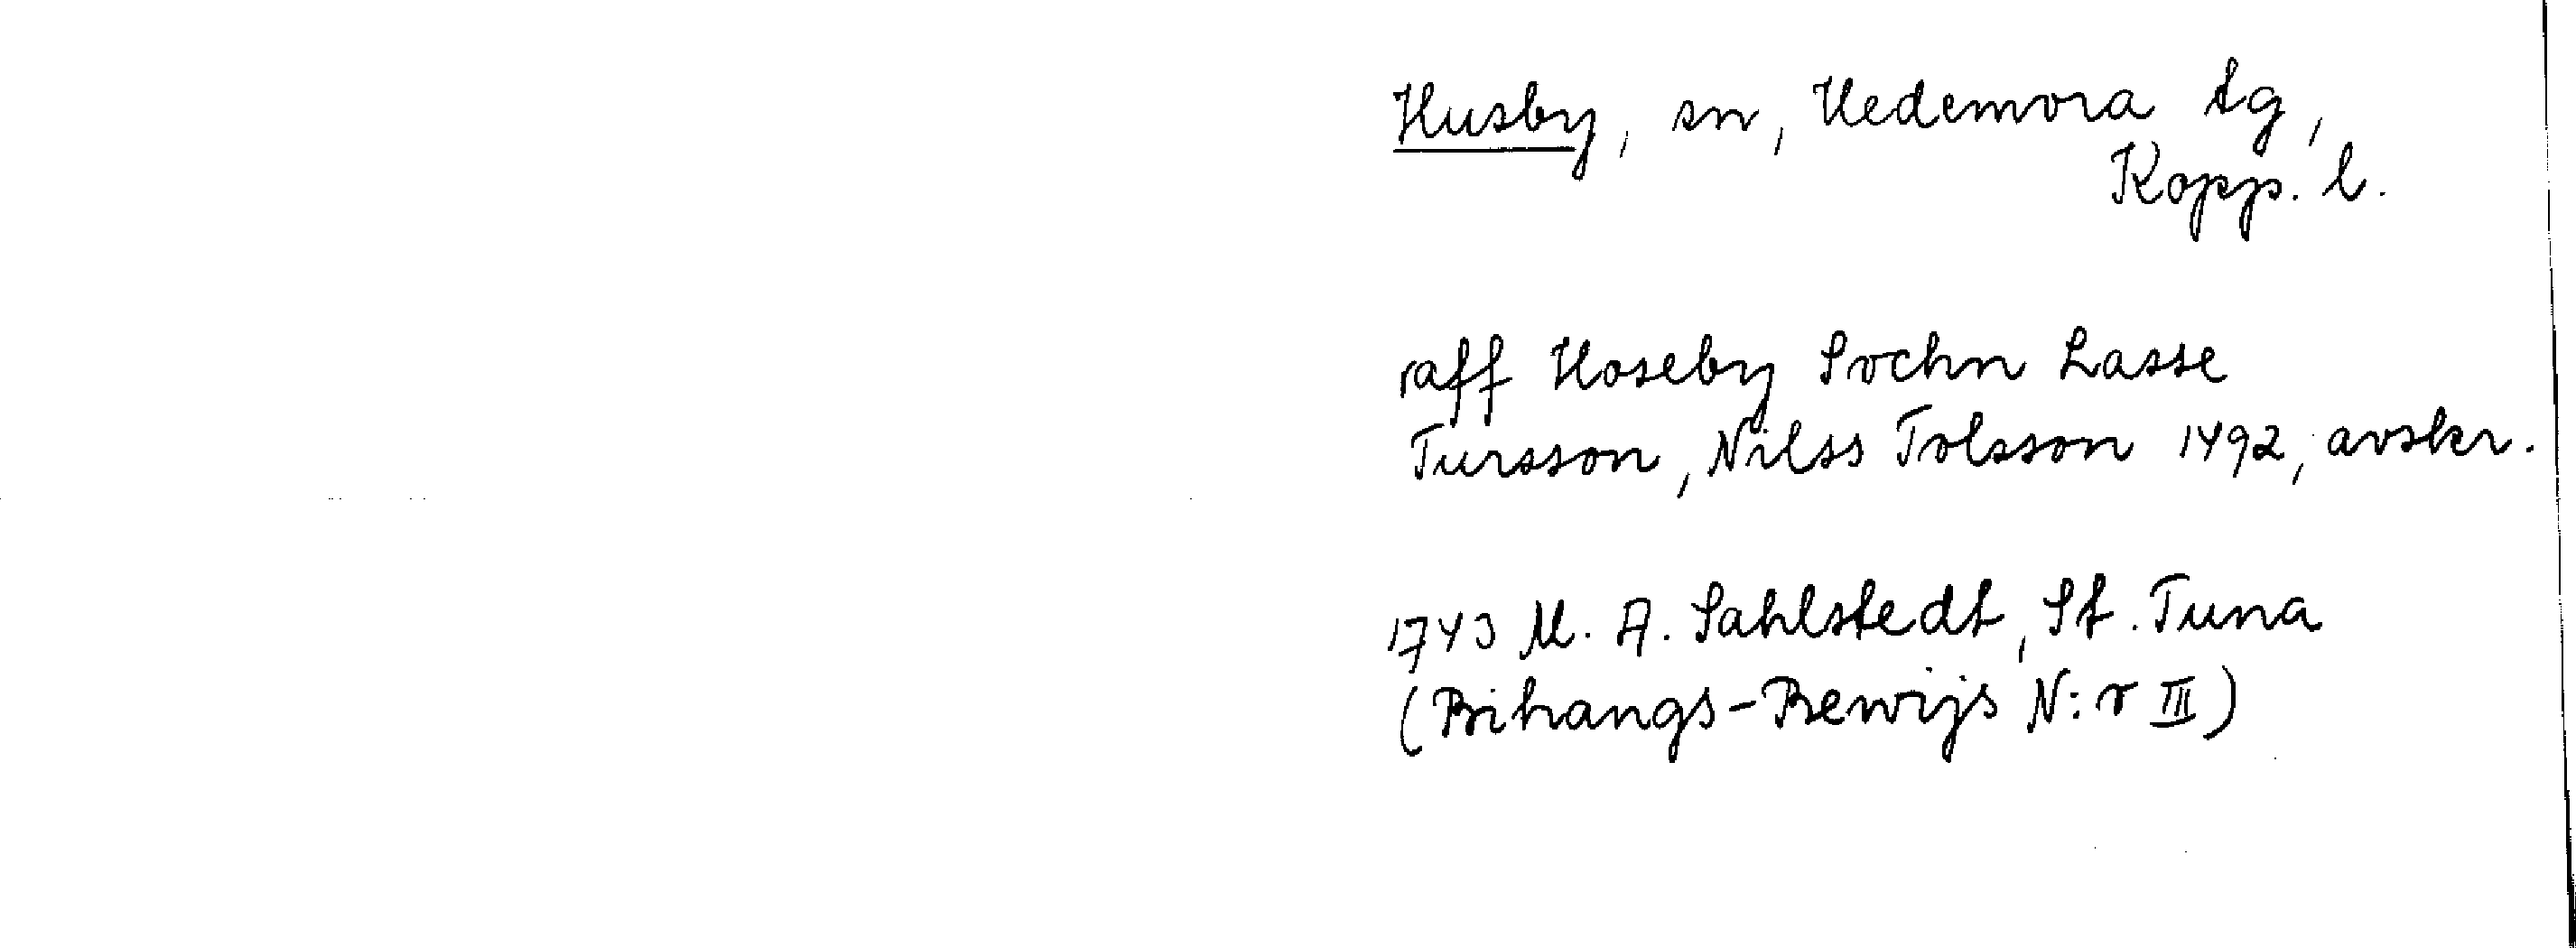 Husby, sn, Hedemora tg,
Kopp. l.
aff Hoseby Sochn Lasse
Tursson, Nilss Tolsson 1492, avskr.
1743 M. A. Sahlstedt, St. Tuna
(Bihangs-Bewijs N:r III)